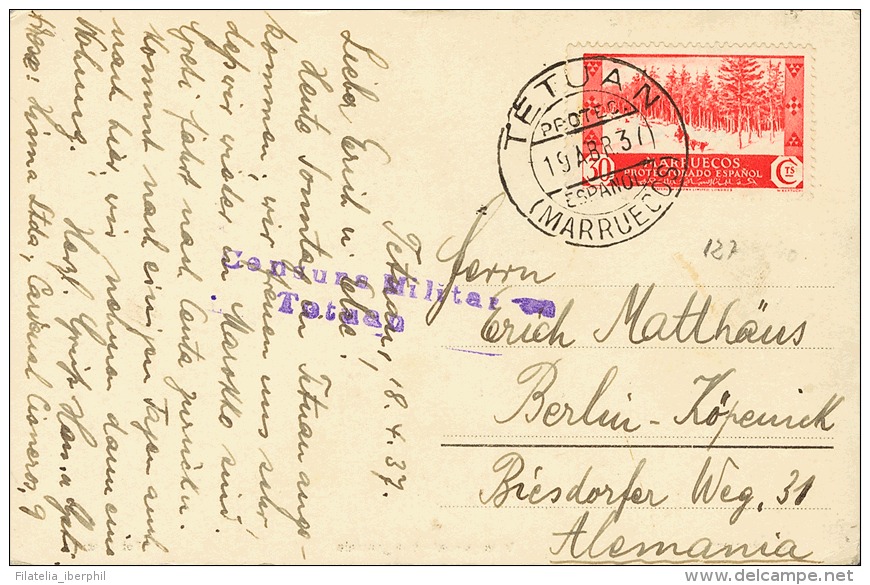 Tetuan, 18.4.37.
Lieber Erich u. Else!
Heute Sonntag in Tetuan ange-
kommen, wir freuen uns sehr
daß wir wieder in Marokko sind.
Greti fährt nach Ceuta zurück u.
kommt nach einigen Tagen auch
nach hier, wir nehmen dann eine
Wohnung. Herzl. Gruß Hans u. Greti.
Adresse: Hisma Ltda, Cardenal Cisneros, 9
Censura Militar
Tetuan
TETUAN
PROTEC
19 ABR.37
ESPAÑOL
(MARRUECOS)
30
MARRUECOS
PROTECTORADO ESPAÑOL
CTS
127
Herrn
Erich Matthäus
Berlin-Köpenick
Biesdorfer Weg, 31
Alemania
Filatelia_iberphil
delcampe.net